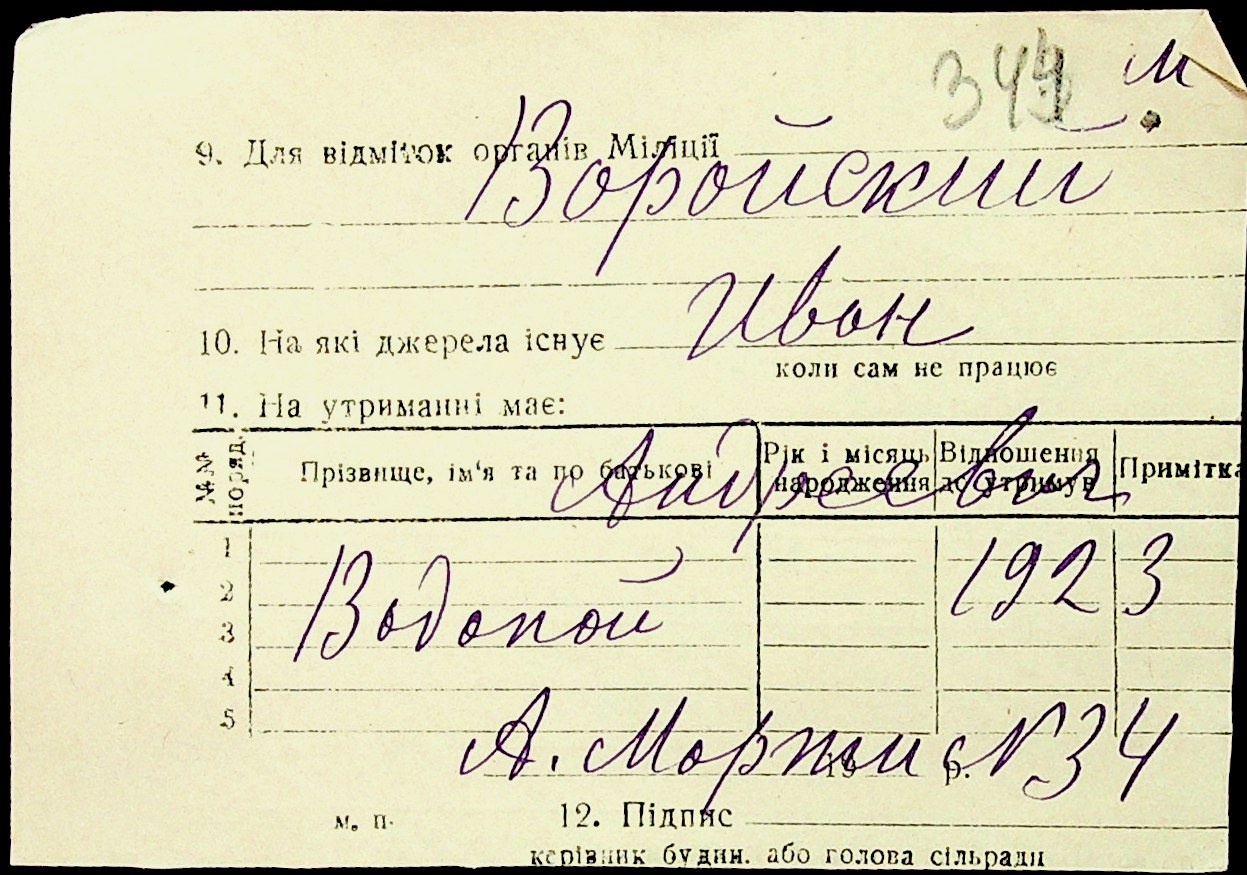 344 м
9. Для відміток органів Міліції
Воройский
10. На які джерела існує
Иван
коли сам не працює
11. На утриманні має:
№№ поряд. Прізвище, ім'я та по батькові Рік і місяць народження Відношення до утримув Примітка
Андреевич
1
2
3
4
5
Водопой 1923
А. Марти №34
19 р.
м. п. 12. Підпис
керівник будин. або голова сільради